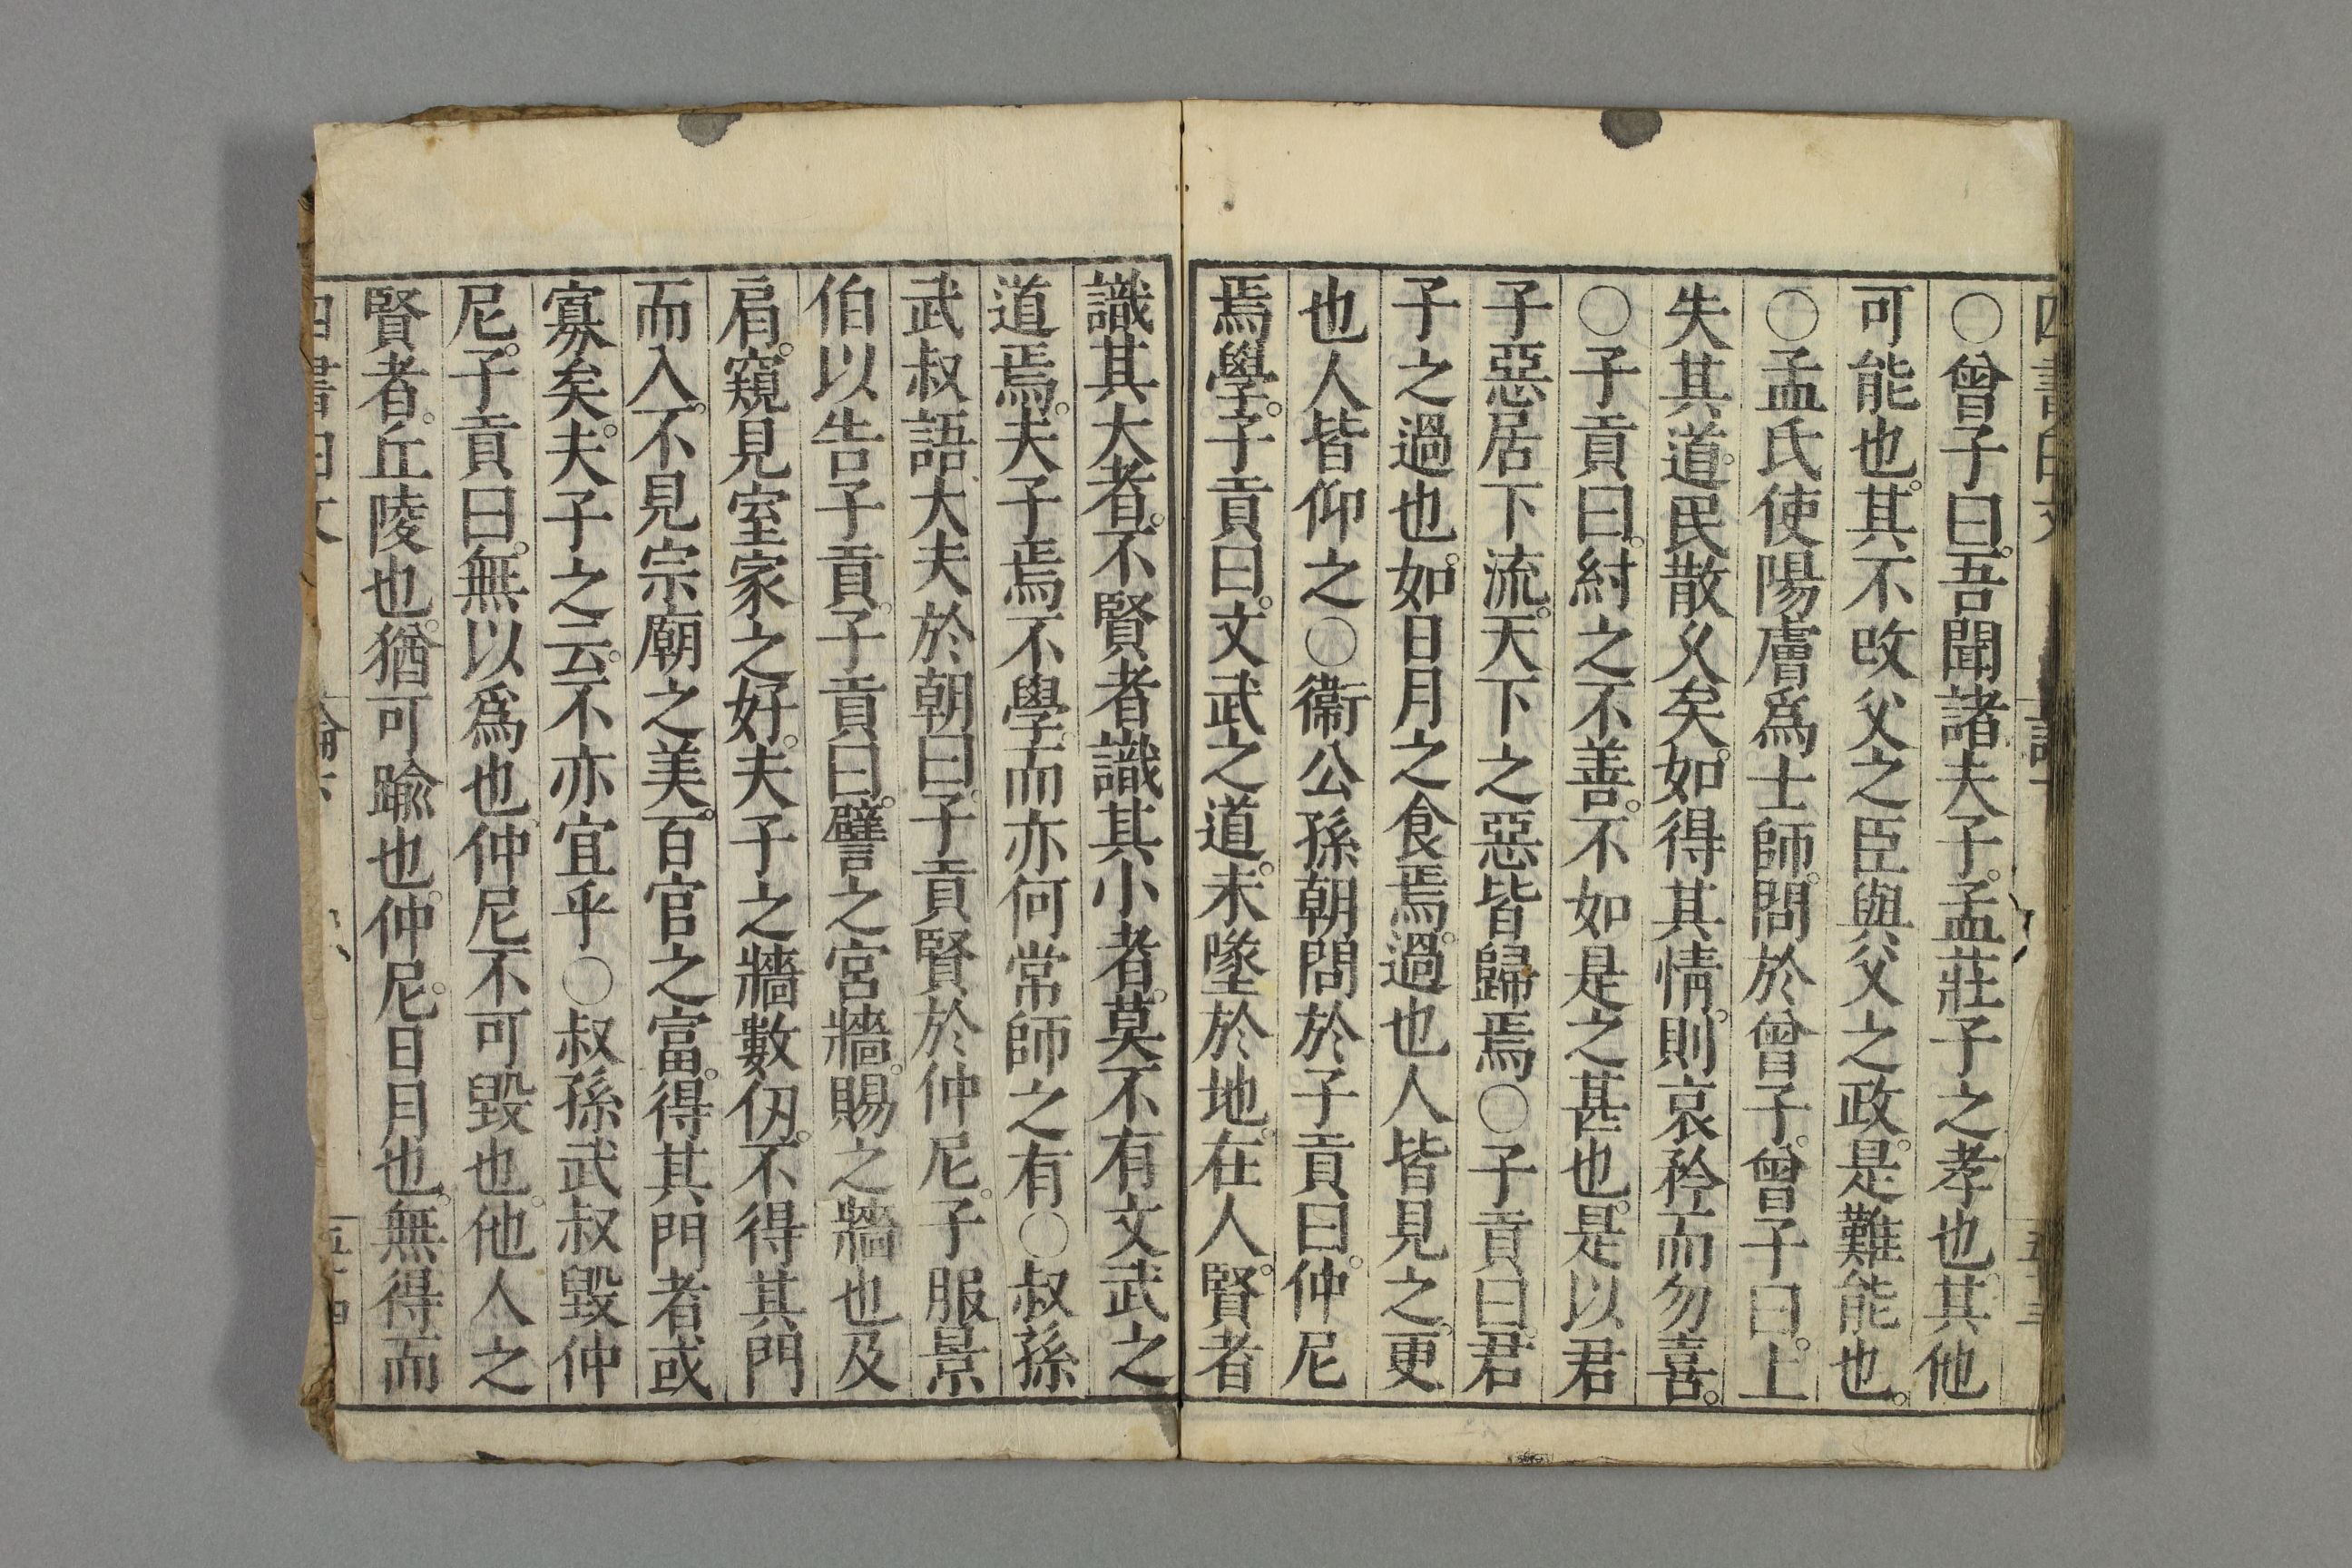 〇曾子曰。吾聞諸夫子。孟莊子之孝也。其他
可能也。其不改父之臣與父之政。是難能也。
〇孟氏使陽膚爲士師。問於曾子。曾子曰。上
失其道。民散久矣。如得其情。則哀矜而勿喜。
〇子貢曰。紂之不善。不如是之甚也。是以君
子惡居下流。天下之惡皆歸焉〇子貢曰。君
子之過也。如日月之食焉。過也人皆見之。更
也人皆仰之〇衞公孫朝問於子貢曰。仲尼
焉學。子貢曰。文武之道。未墜於地。在人。賢者
識其大者。不賢者識其小者。莫不有文武之
道焉。夫子焉不學。而亦何常師之有〇叔孫
武叔語大夫於朝曰。子貢賢於仲尼。子服景
伯以告子貢。子貢曰。譬之宮牆。賜之牆也及
肩。窺見室家之好。夫子之牆數仞。不得其門
而入。不見宗廟之美。百官之富。得其門者或
寡矣。夫子之云。不亦宜乎〇叔孫武叔毀仲
尼。子貢曰。無以爲也。仲尼不可毀也。他人之
賢者。丘陵也。猶可踰也。仲尼。日月也。無得而